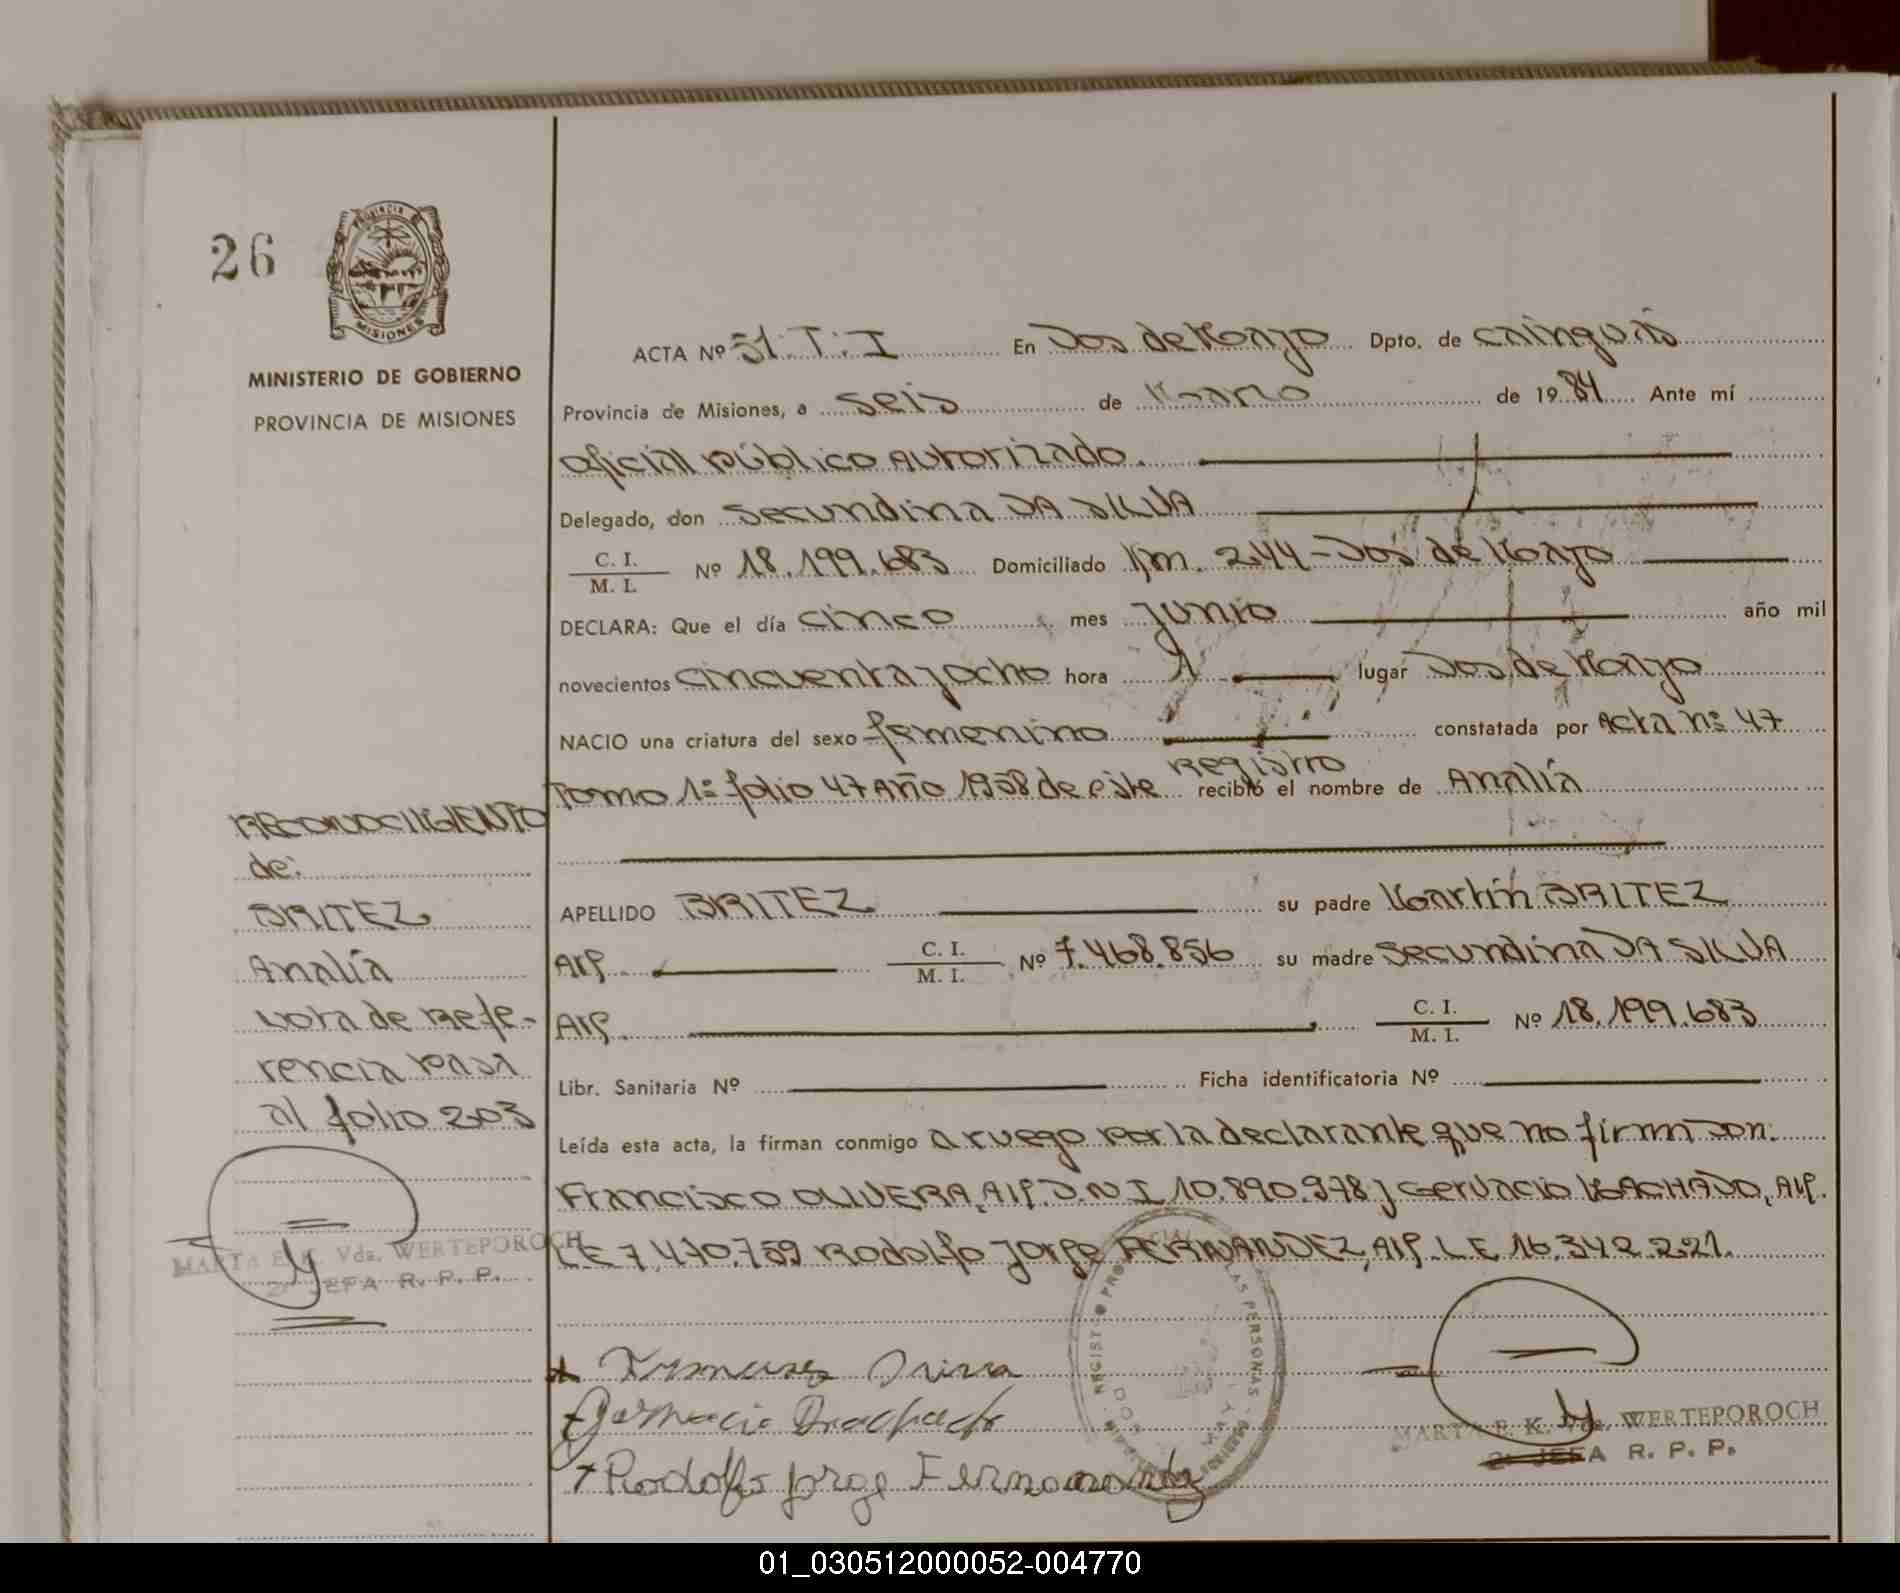 26
PROVINCIA DE
MISIONES
MINISTERIO DE GOBIERNO
PROVINCIA DE MISIONES
ACTA Nº 51. T. I En Dos de Mayo Dpto. de Cainguás
Provincia de Misiones, a seis de de 19 84 Ante mí
oficial público autorizado.
Delegado, don Secundina DA SILVA
C. I. / M. I. Nº 18.199.683 Domiciliado Km. 244 - Dos de Mayo
DECLARA: Que el día cinco mes junio año mil
novecientos cincuenta y ocho hora 1 lugar Dos de Mayo
NACIO una criatura del sexo femenino constatada por Acta nº 47
Registro
Tomo 1º folio 47 Año 1958 de este recibió el nombre de Analía
APELLIDO BRITEZ su padre Martín BRITEZ
Arg. C. I. / M. I. Nº 7.468.856 su madre Secundina DA SILVA
Arg. C. I. / M. I. Nº 18.199.683
Libr. Sanitaria Nº Ficha identificatoria Nº
Leída esta acta, la firman conmigo a ruego por la declarante que no firma don:
Francisco OLIVERA, Arg. D.N.I 10.890.978 y Gervacio MACHADO, Arg.
LE 7.470.759 Rodolfo Jorge FERNANDEZ, Arg. L.E 16.342.221.
RECONOCIMIENTO
de:
BRITEZ
Analía
Nota de Refe-
rencia pasa
al folio 203
MARTA E. K. Vda. WERTEPOROCH
2º JEFA R. P. P.
Gervacio Machado
Rodolfo Jorge Fernandez
LAS PERSONAS
MARTA E. K. Vda. WERTEPOROCH
2º JEFA R. P. P.
01_030512000052-004770